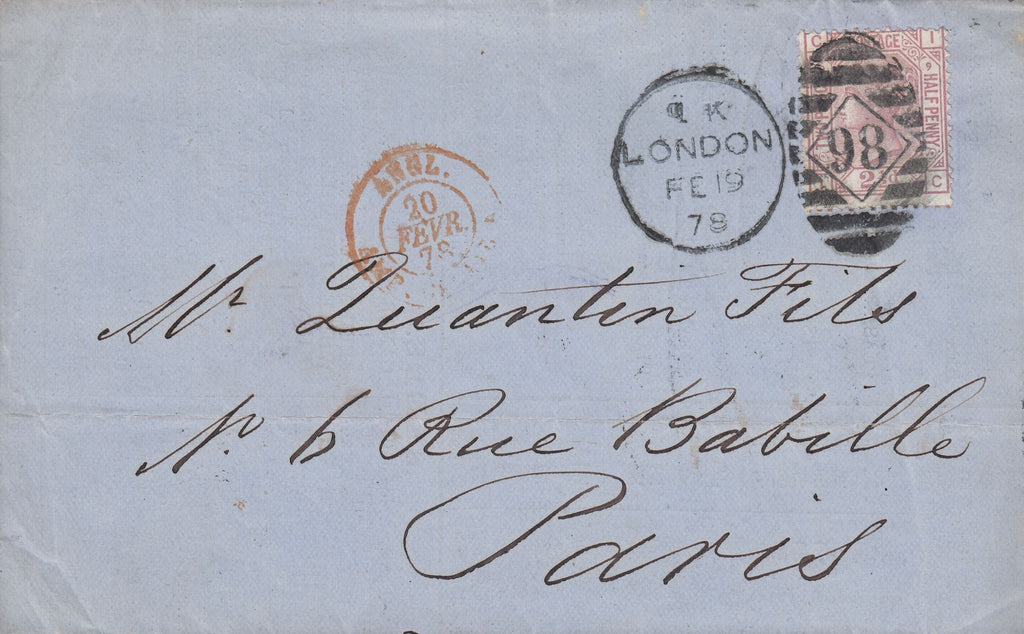 C POSTAGE I
9 HALF PENNY
98
2½
C
9 K
LONDON
FE 19
78
ANGL.
20
FEVR.
78
Mr. Quantin Fils
No. 6 Rue Babille
Paris